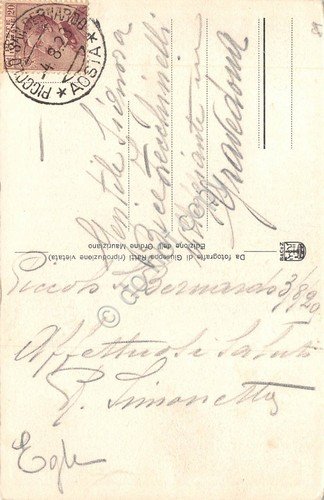 PICCOLO S. BERNARDO
* AOSTA *
Gentile Signora
insegnante
Gravedona
Da fotografie di Giuseppe Ratti (riproduzione vietata)
Edizione dell' Ordine Mauriziano
Piccolo S. Bernardo 3/8/29
Affettuosi saluti
R. Simonetta
Egle